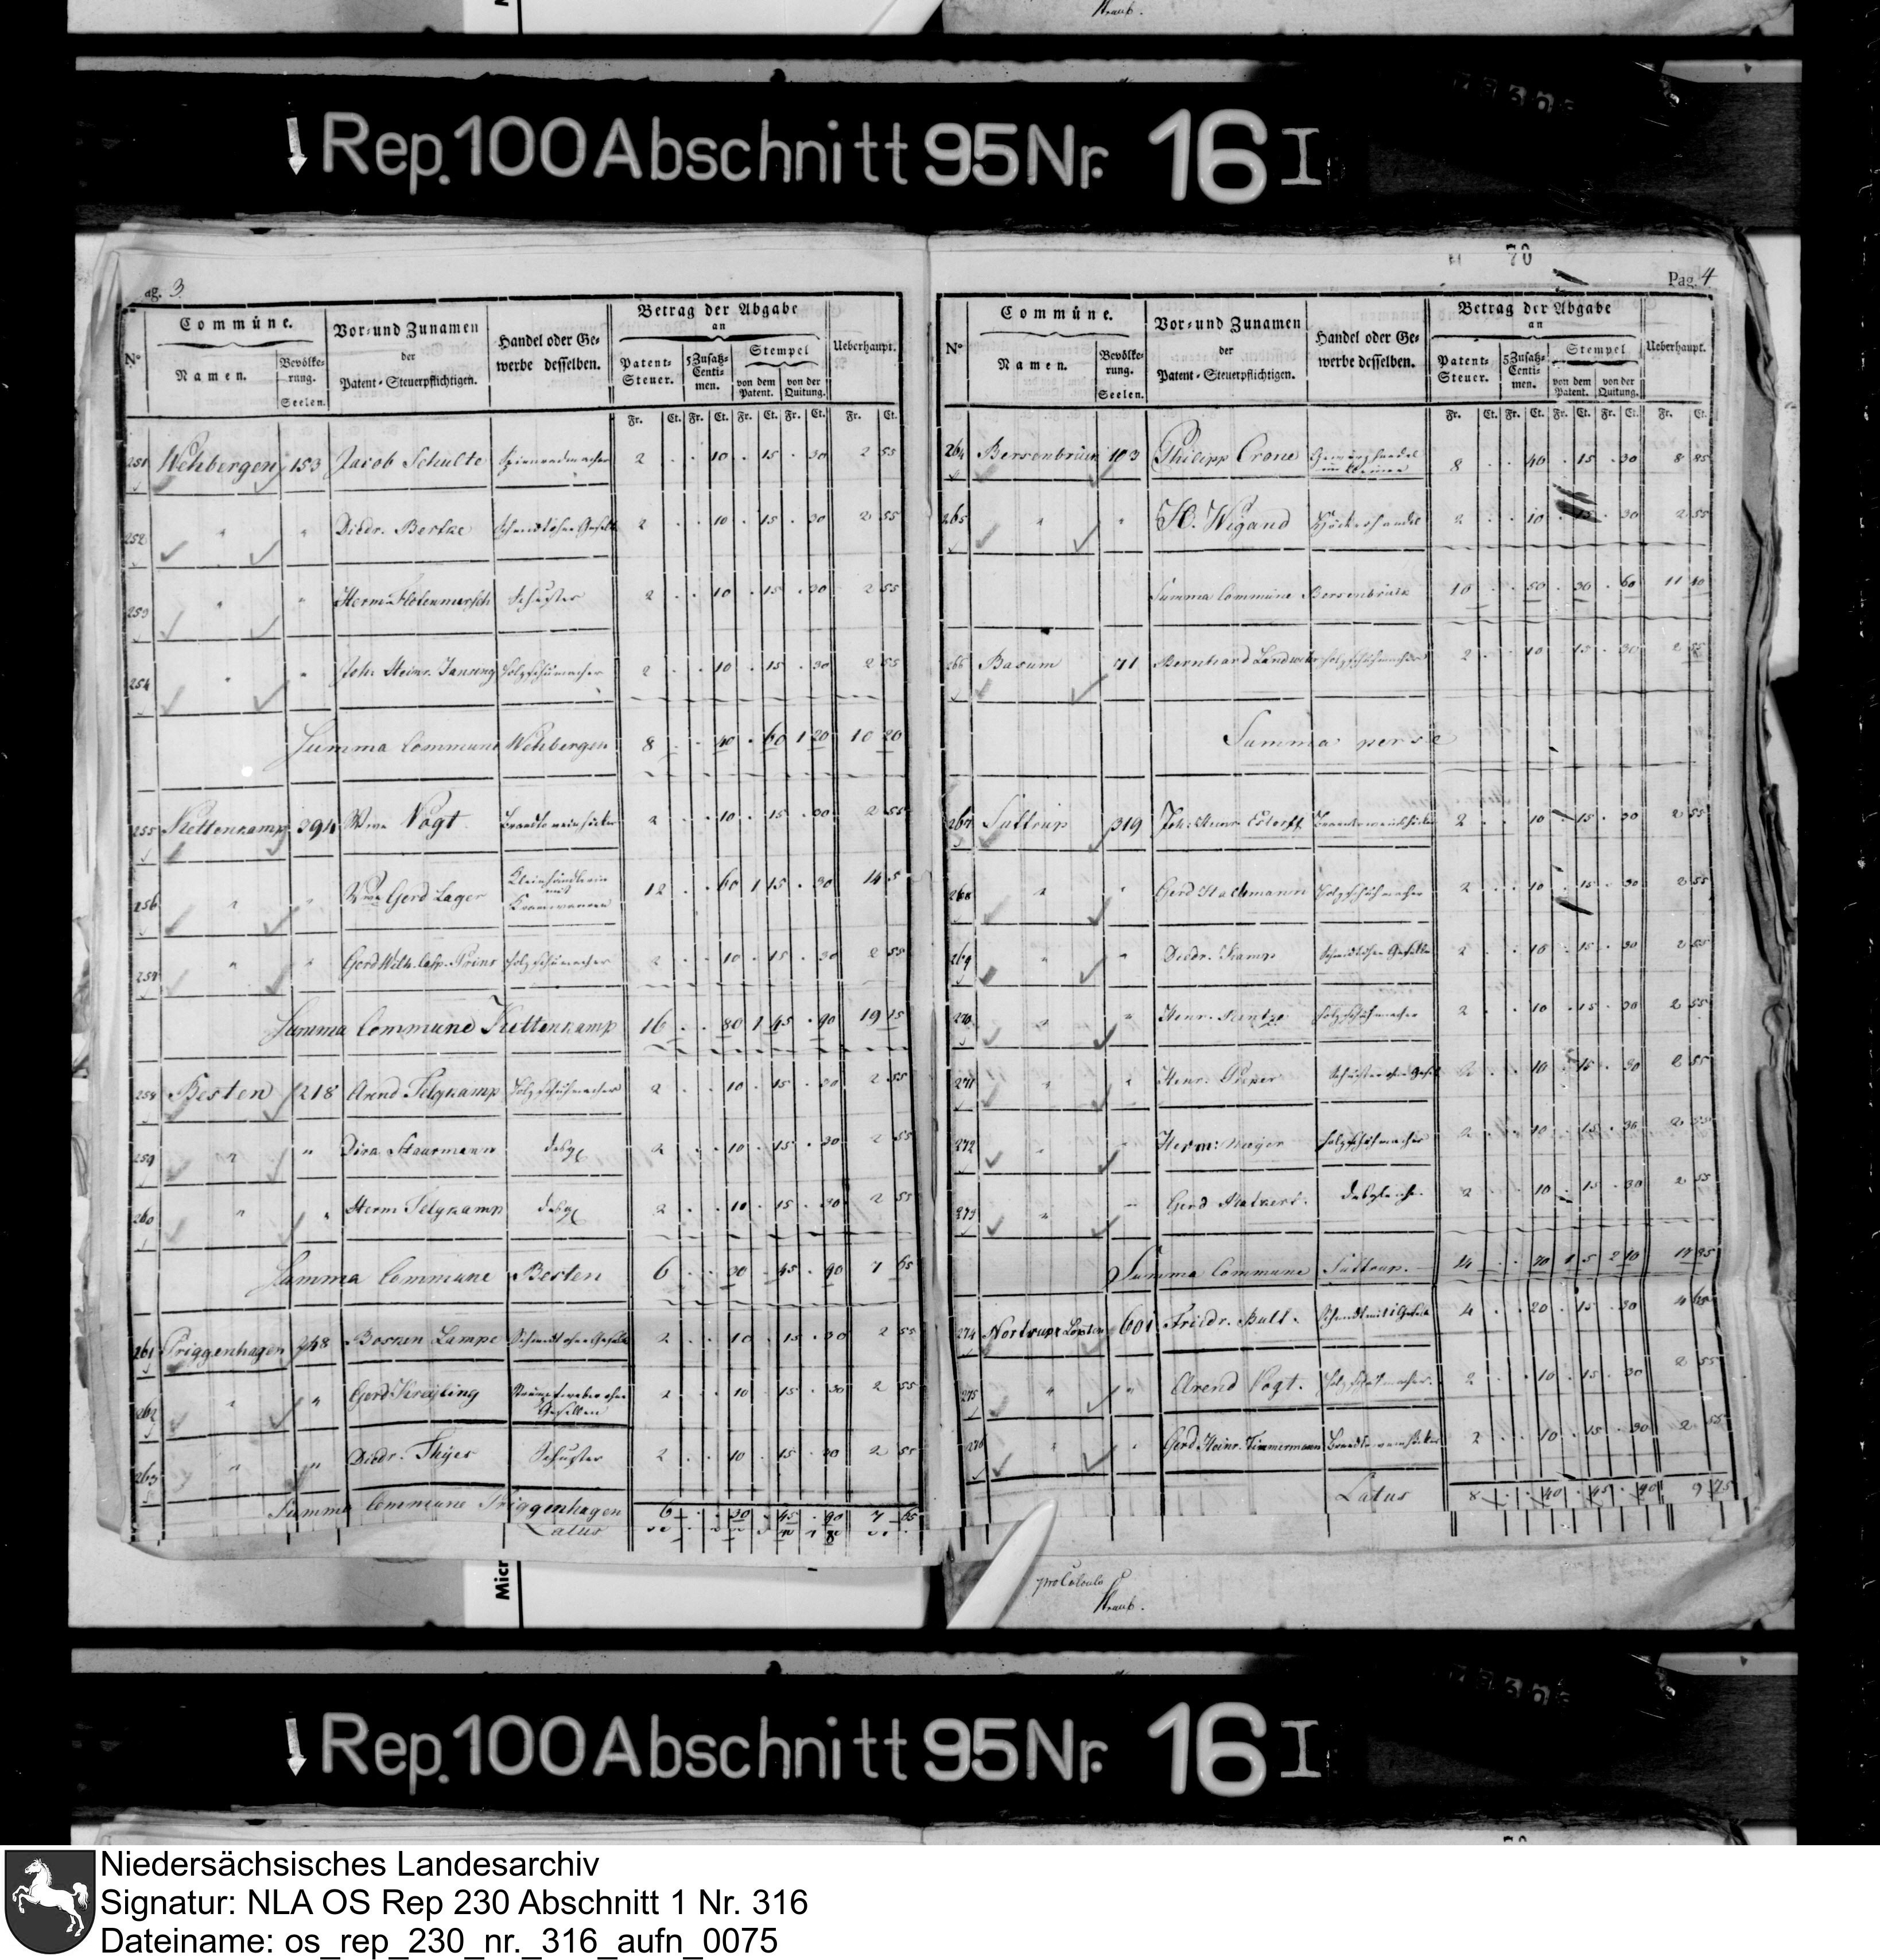 Raub.
Rep. 100 Abschnitt 95 Nr. 16 I
ag. 3.
Commüne.
Namen.
Bevölke-
rung.
Seelen.
N°
Vor- und Zunamen
der
Patent-Steuerpflichtigen.
Handel oder Ge-
werbe desselben.
Betrag der Abgabe
an
Patent-
Steuer.
5 Zusatz-
Centi-
men.
Stempel
von dem
Patent.
von der
Quitung.
Ueberhaupt.
Fr. Ct. Fr. Ct. Fr. Ct. Fr. Ct. Fr. Ct.
251 Wehbergen 153 Jacob Schulte 2 . . 10 . 15 . 30 2 55
252 " " Diedr. Bertke Schmidt ohne Gesell 2 . . 10 . 15 . 30 2 55
253 " " Herm: Schuster 2 . . 10 . 15 . 30 2 55
254 " " Joh: Heinr. Jansing Holzschumacher 2 . . 10 . 15 . 30 2 55
Summa Commune Wehbergen 8 . . 40 . 60 1 20 10 20
255 Kettenkamp 394 Wwe Vogt 2 . . 10 . 15 . 30 2 55
256 " " Wwe Gerd Lager Kleinhändlerin
mit
Kramwaaren 12 . . 60 1 15 . 30 14 5
257 " " Gerd Wilh. Holzschumacher 2 . . 10 . 15 . 30 2 55
Summa Commune Kettenkamp 16 . . 80 1 45 . 90 19 15
258 Besten 218 Arend Selgkamp Holzschuhmacher 2 . . 10 . 15 . 30 2 55
259 " " Dira desgl 2 . . 10 . 15 . 30 2 55
260 " " Herm Selgkamp desgl 2 . . 10 . 15 . 30 2 55
Summa Commune Besten 6 . . 30 . 45 . 90 7 65
261 Priggenhagen 248 Lampe Schmidt ohne Gesell 2 . . 10 . 15 . 30 2 55
262 " " Gerd Kreyling ohne
Gesellen 2 . . 10 . 15 . 30 2 55
263 " " Diedr. Thyes Schuster 2 . . 10 . 15 . 30 2 55
Summa Commune Priggenhagen 6 . . 30 . 45 . 90 7 65
Latus
70
Pag. 4
Commüne.
Namen.
Bevölke-
rung.
Seelen.
N°
Vor- und Zunamen
der
Patent-Steuerpflichtigen.
Handel oder Ge-
werbe desselben.
Betrag der Abgabe
an
Patent-
Steuer.
5 Zusatz-
Centi-
men.
Stempel
von dem
Patent.
von der
Quitung.
Ueberhaupt.
Fr. Ct. Fr. Ct. Fr. Ct. Fr. Ct. Fr. Ct.
264 Bersenbrück 103 Philipp Crone Gewürzhandel
im Kleinen 8 . . 40 . 15 . 30 8 85
265 " " H. Wigand Höckerhandel 2 . . 10 . 15 . 30 2 55
Summa Commune Bersenbrück 10 . . 50 . 30 . 60 11 40
266 Basum 71 Bernhard Landwehr Holzschuhmacher 2 . . 10 . 15 . 30 2 55
Summa per se
267 Suttrup 319 Joh: Henr 2 . . 10 . 15 . 30 2 55
268 " " Gerd Holzschuhmacher 2 . . 10 . 15 . 30 2 55
269 " " Diedr. Kamp Schmidt ohne Gesellen 2 . . 10 . 15 . 30 2 55
270 " " Henr. Holzschuhmacher 2 . . 10 . 15 . 30 2 55
271 " " Henr. Pieper Schuster ohne Gesell 2 . . 10 . 15 . 30 2 55
272 " " Herm: Meyer Holzschuhmacher 2 . . 10 . 15 . 30 2 55
273 " " Gerd desgleich. 2 . . 10 . 15 . 30 2 55
Summa Commune Suttrup. 14 . . 70 1 5 2 10 17 85
274 Nortrup 601 Friedr. Schmidt mit 1 Gesell 4 . . 20 . 15 . 30 4 65
275 " " Arend Vogt. Holzschuhmacher. 2 . . 10 . 15 . 30 2 55
276 " " Gerd Heinr. Timmermann 2 . . 10 . 15 . 30 2 55
Latus 8 . . 40 . 45 . 90 9 75
pro Calculo
Raub.
Micr
Rep. 100 Abschnitt 95 Nr. 16 I
Niedersächsisches Landesarchiv
Signatur: NLA OS Rep 230 Abschnitt 1 Nr. 316
Dateiname: os_rep_230_nr._316_aufn_0075